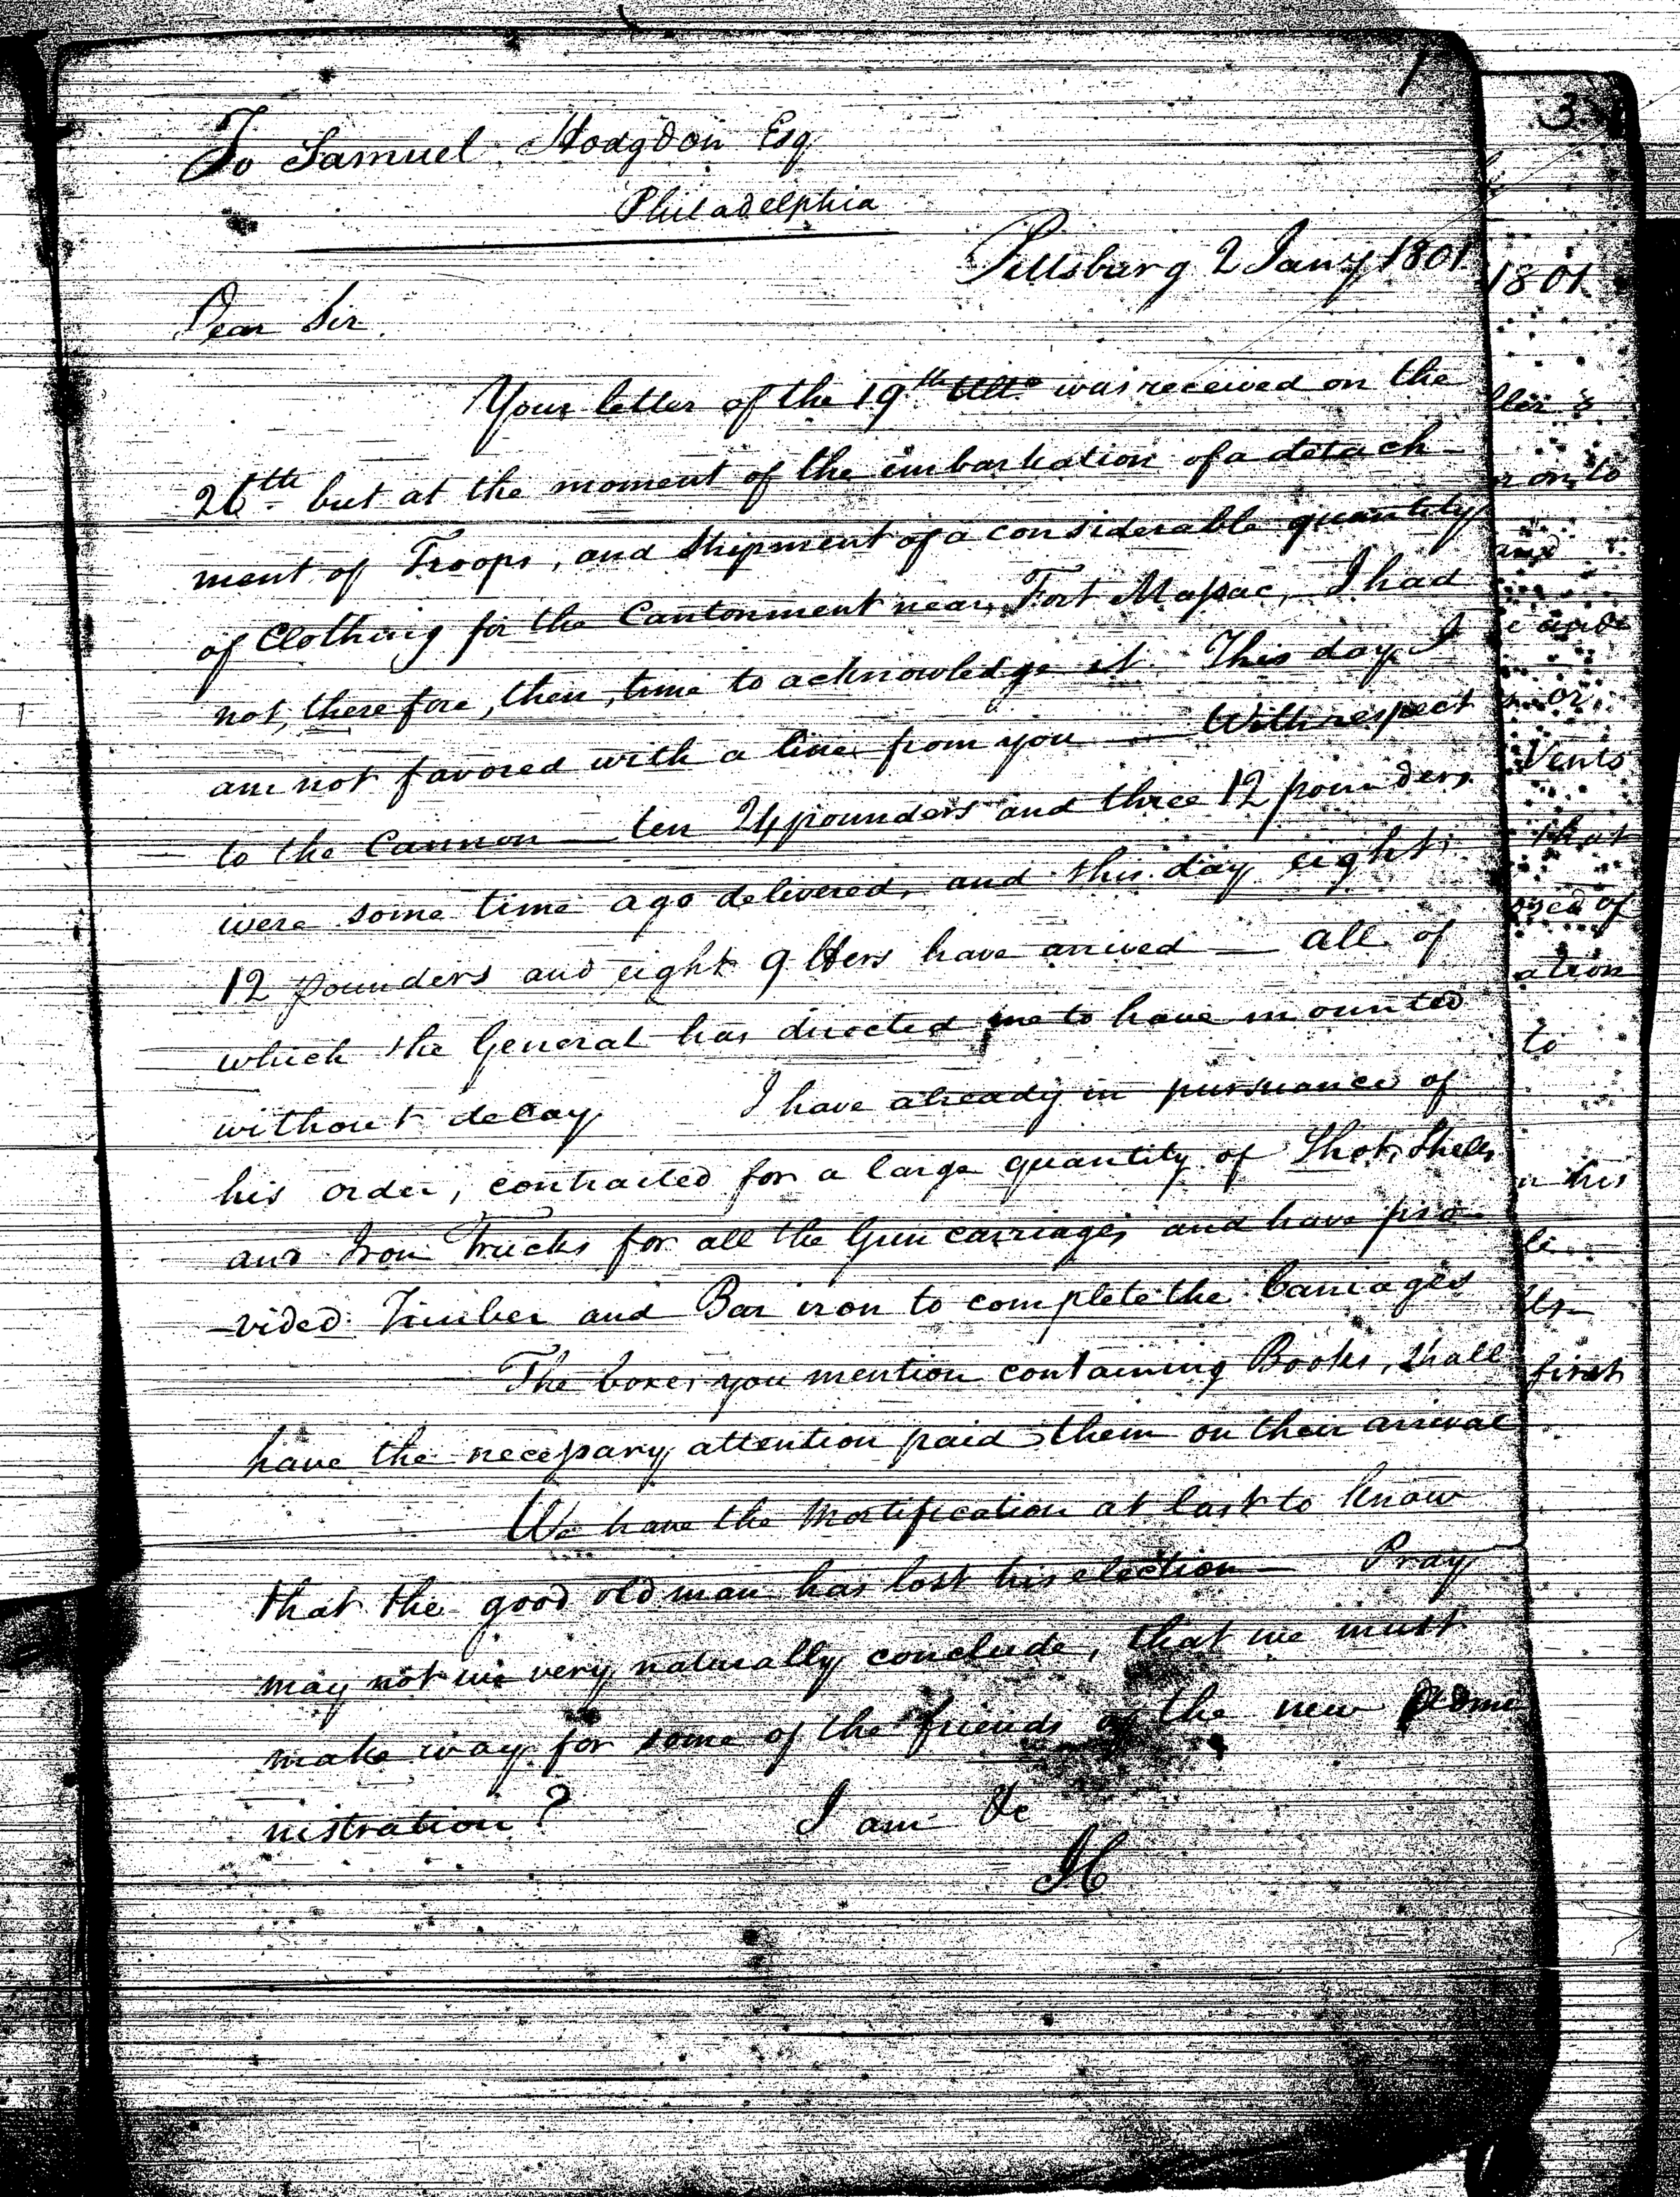 1
To Samuel Hodgdon Esq
Philadelphia
Pittsburg 2 Jany 1801
Dear Sir
Your letter of the 19th Ulto was received on the
26th but at the moment of the imbarkation of a detach-
ment of Troops, and Shipment of a considerable quantity
of Clothing for the Cantonment near Fort Massac, I had
not, therefore, then, time to acknowledge it. This day I
am not favored with a line from you — With respect
to the Cannon — ten 24 pounders and three 12 pounders
were some time ago delivered, and this day eight
12 pounders and eight 9 lbers have arrived — all of
which the General has directed me to have mounted
without delay I have already in pursuance of
his order, contracted for a large quantity of Shot, Shells,
and Iron Trucks for all the Gun carriages and have pro-
-vided Timber and Bar iron to complete the Carriages
The boxes you mention containing Books, shall
have the necessary attention paid them on their arrival
We have the Mortification at last to know
that the good old man has lost his election — Pray
may not we very naturally conclude, that we must
make way for some of the friends of the new Admi
nistration? I am &c
IC
3
1801
on to
and
or
Vents
that
of
ation
to
his
first